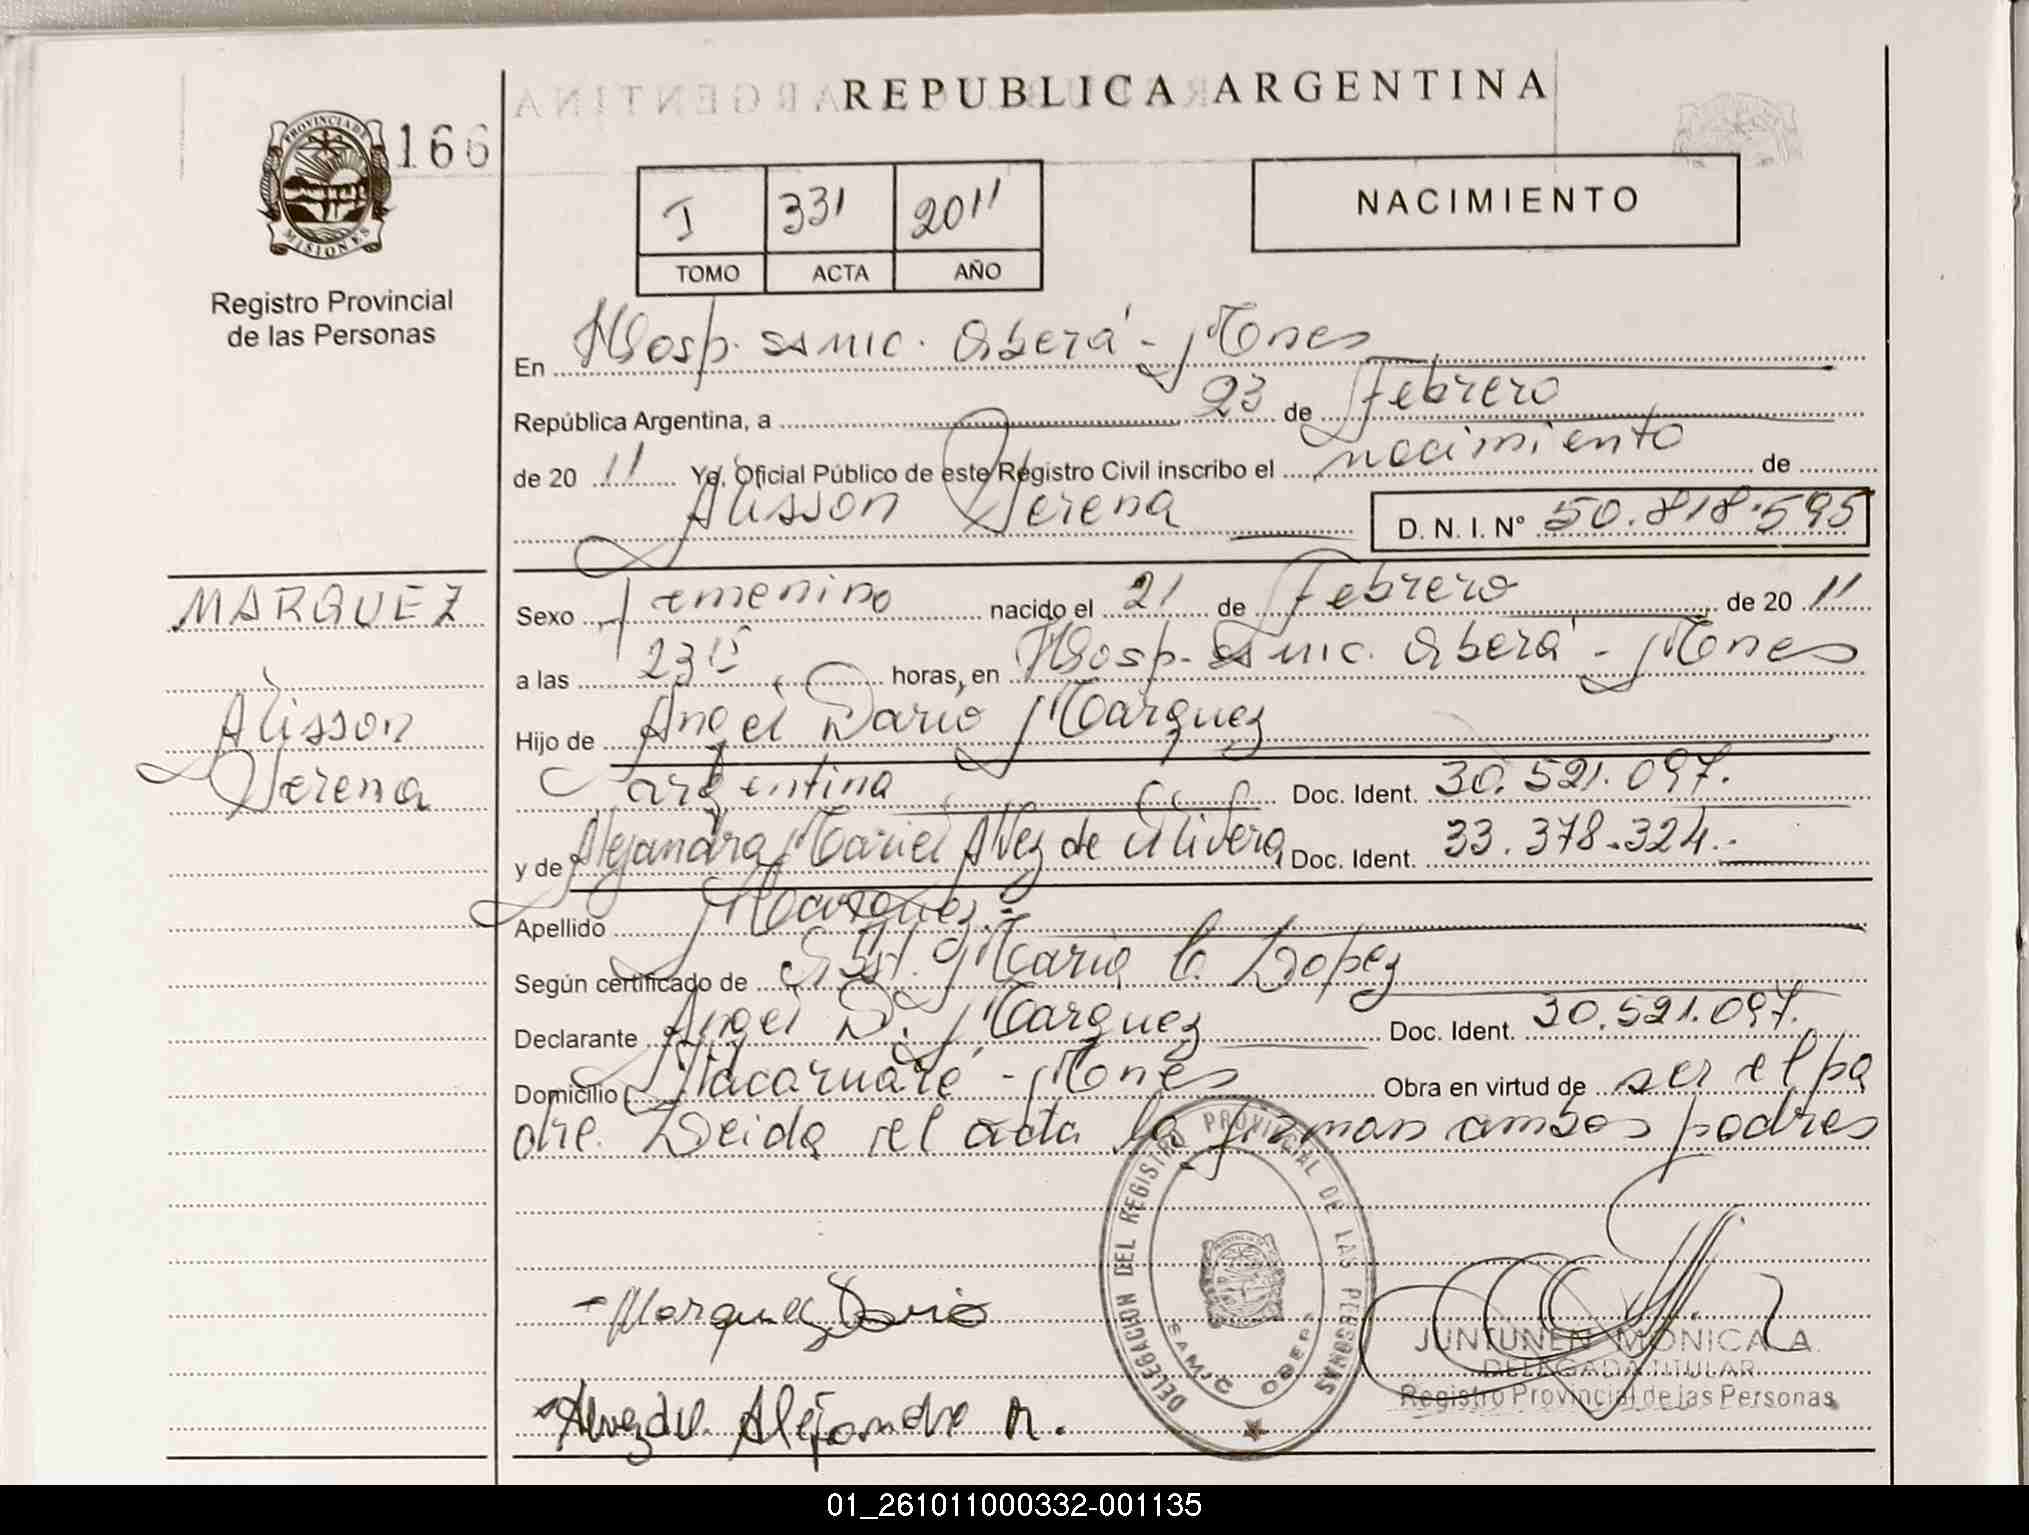 REPUBLICA ARGENTINA
PROVINCIA DE
MISIONES
166
Registro Provincial
de las Personas
I 331 2011
TOMO ACTA AÑO
NACIMIENTO
En Hosp. SAMIC. Oberá - Mones
República Argentina, a 23 de Febrero
de 20 11 Yo, Oficial Público de este Registro Civil inscribo el nacimiento de
Alisson Yerena D. N. I. N° 50.818.595
MARQUEZ
Alisson
Yerena
Sexo Femenino nacido el 21 de Febrero de 20 11
a las 23 horas, en Hosp. SAMIC. Oberá - Mones
Hijo de Angel Dario Marquez
argentina Doc. Ident. 30.521.097.
y de Alejandra Mariel Alvez de Olivera Doc. Ident. 33.378.324.-
Apellido Marquez.-
Según certificado de Obst. Maria C. Lopez
Declarante Angel D. Marquez Doc. Ident. 30.521.097.
Domicilio Yacaruaré - Mones Obra en virtud de ser el pa
dre. Leida el acta la firman ambos padres
DELEGACION DEL REGISTRO PROVINCIAL DE LAS PERSONAS
SAMIC OBERA
- Marquez Dario
Alejandra M.
JUNTUNEN MONICA A.
DELEGADA TITULAR
Registro Provincial de las Personas
01_261011000332-001135